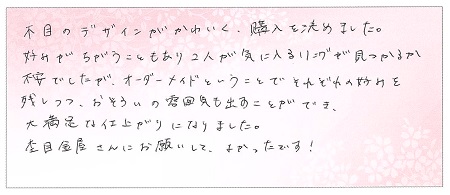 木目のデザインがかわいく、購入を決めました。
好みがちがうこともあり2人が気に入るリングが見つかるか
不安でしたが、オーダーメイドということでそれぞれの好みを
残しつつ、おそろいの雰囲気も出すことができ、
大満足な仕上がりになりました。
杢目金屋さんにお願いして、よかったです!